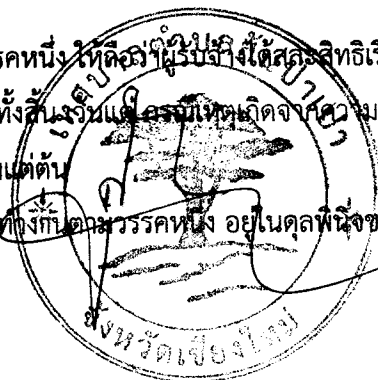 รคหนึ่ง ให้ถือว่าผู้รับจ้างได้สละสิทธิเรี
ทั้งสิ้น เว้นแต่ กรณีเหตุเกิดจากความ
แต่ต้น
ตามวรรคหนึ่ง อยู่ในดุลพินิจข
เทศบาลตำบล
จังหวัดเชียงใหม่